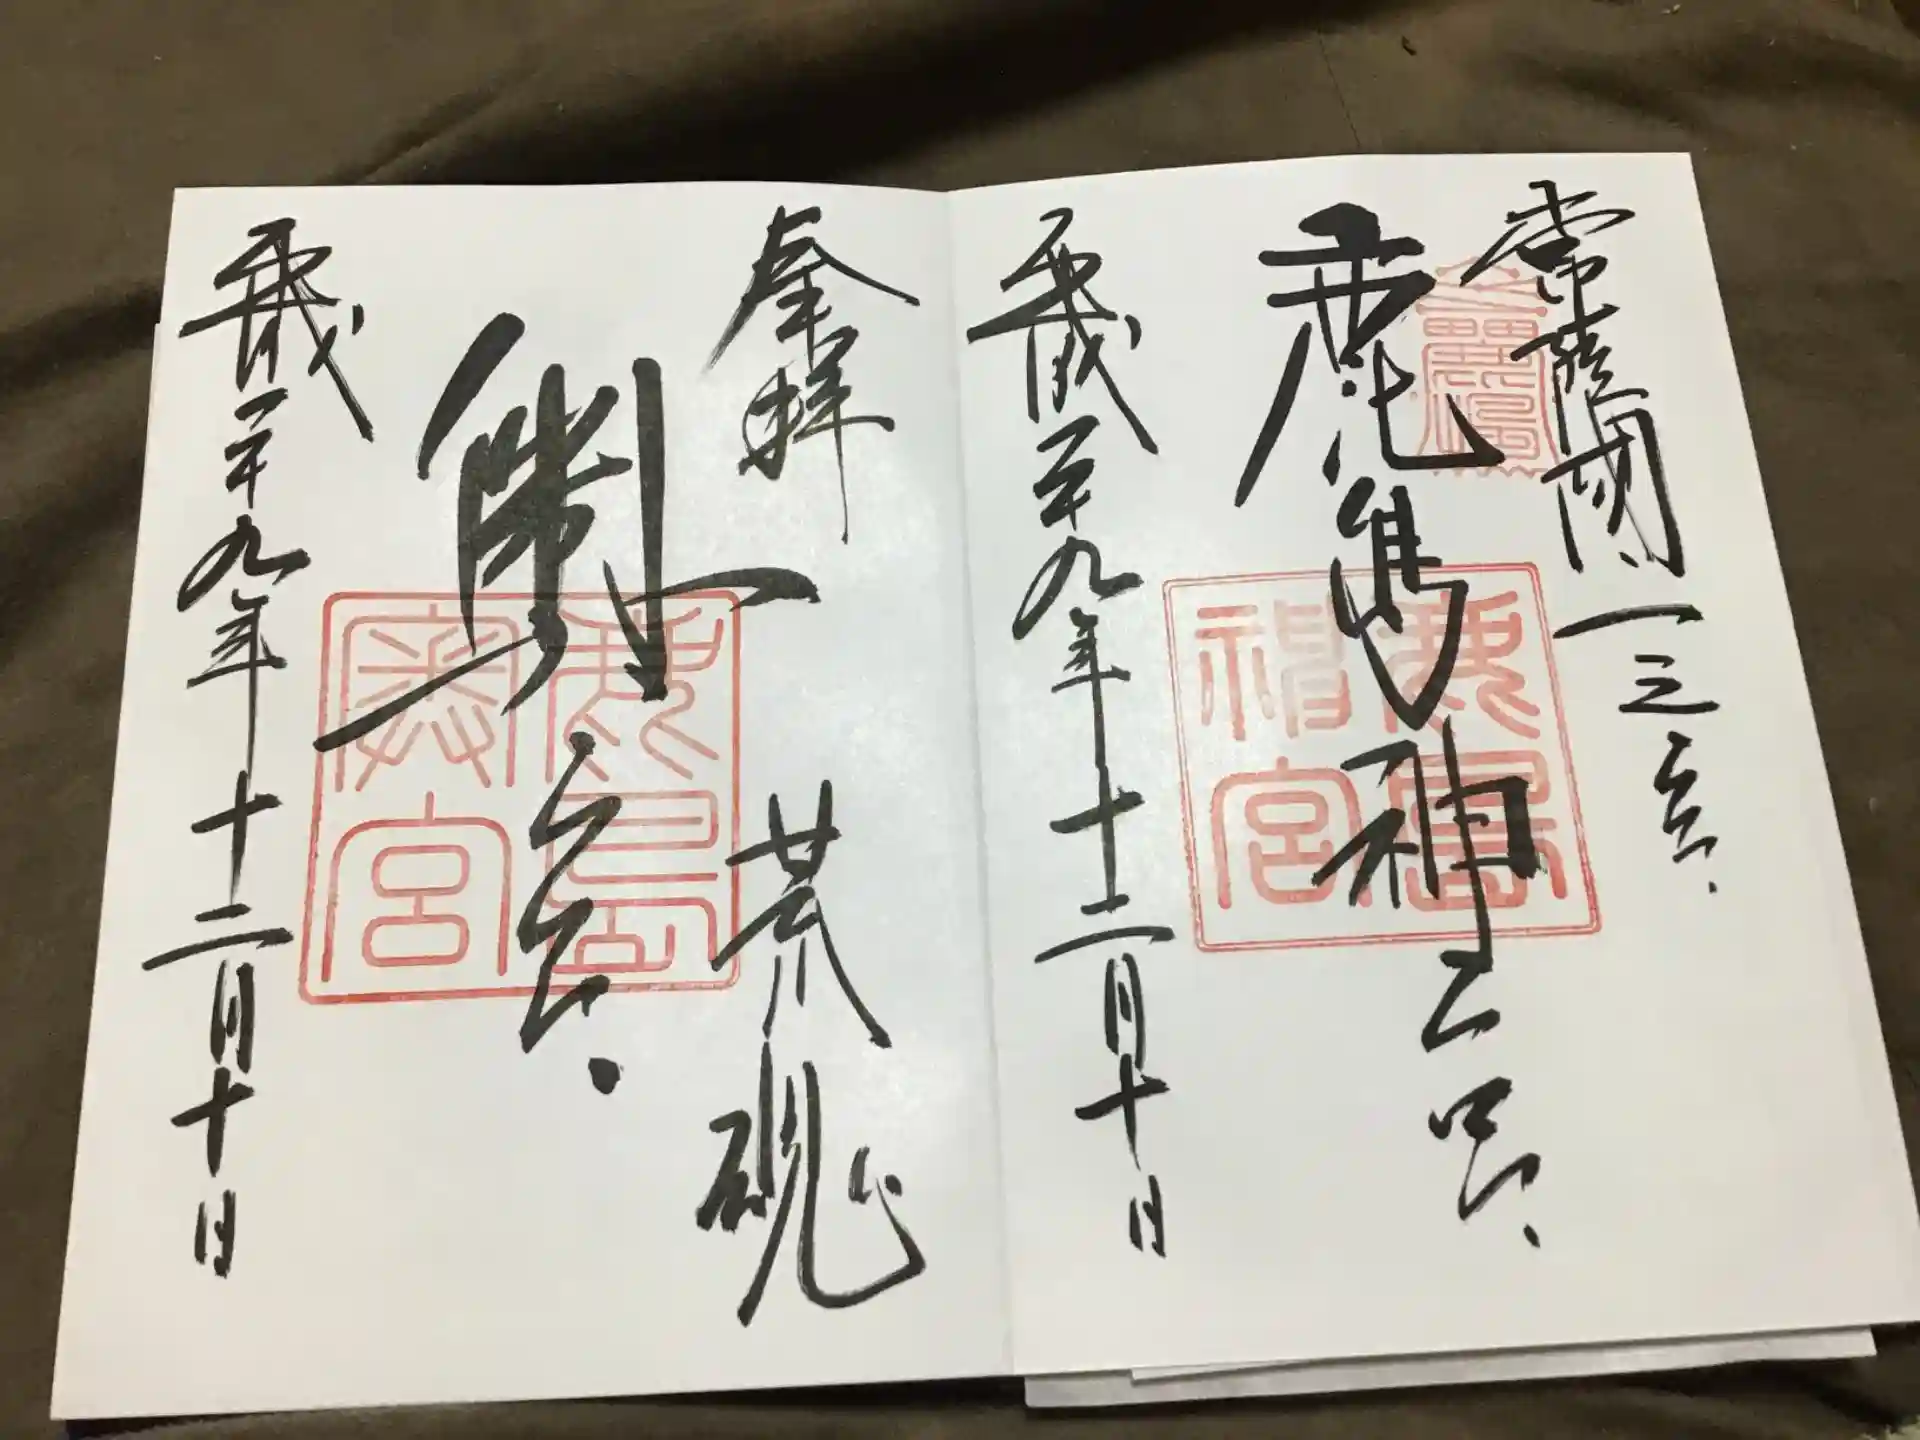 常陸國一之宮
鹿島神宮
平成二十九年十二月十日
奉拝 荒魂
奥宮
平成二十九年十二月十日
鹿島
神宮
鹿島
奥宮